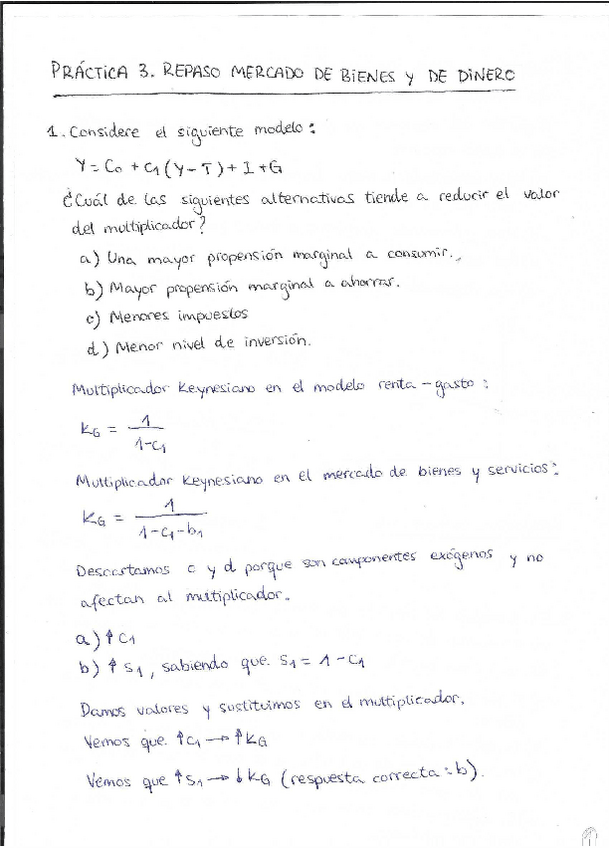 PRÁCTICA 3. REPASO MERCADO DE BIENES Y DE DINERO
1. Considere el siguiente modelo:
Y = C0 + C1 (Y - T) + I + G
¿Cuál de las siguientes alternativas tiende a reducir el valor
del multiplicador?
a) Una mayor propensión marginal a consumir.
b) Mayor propensión marginal a ahorrar.
c) Menores impuestos
d) Menor nivel de inversión.
Multiplicador Keynesiano en el modelo renta-gasto:
KG = 1 / 1-C1
Multiplicador Keynesiano en el mercado de bienes y servicios:
KG = 1 / 1-C1-b1
Descartamos c y d porque son componentes exógenos y no
afectan al multiplicador.
a) ↑ C1
b) ↑ S1, sabiendo que S1 = 1 - C1
Damos valores y sustituimos en el multiplicador.
Vemos que ↑C1 → ↑KG
Vemos que ↑S1 → ↓KG (respuesta correcta: b).
1